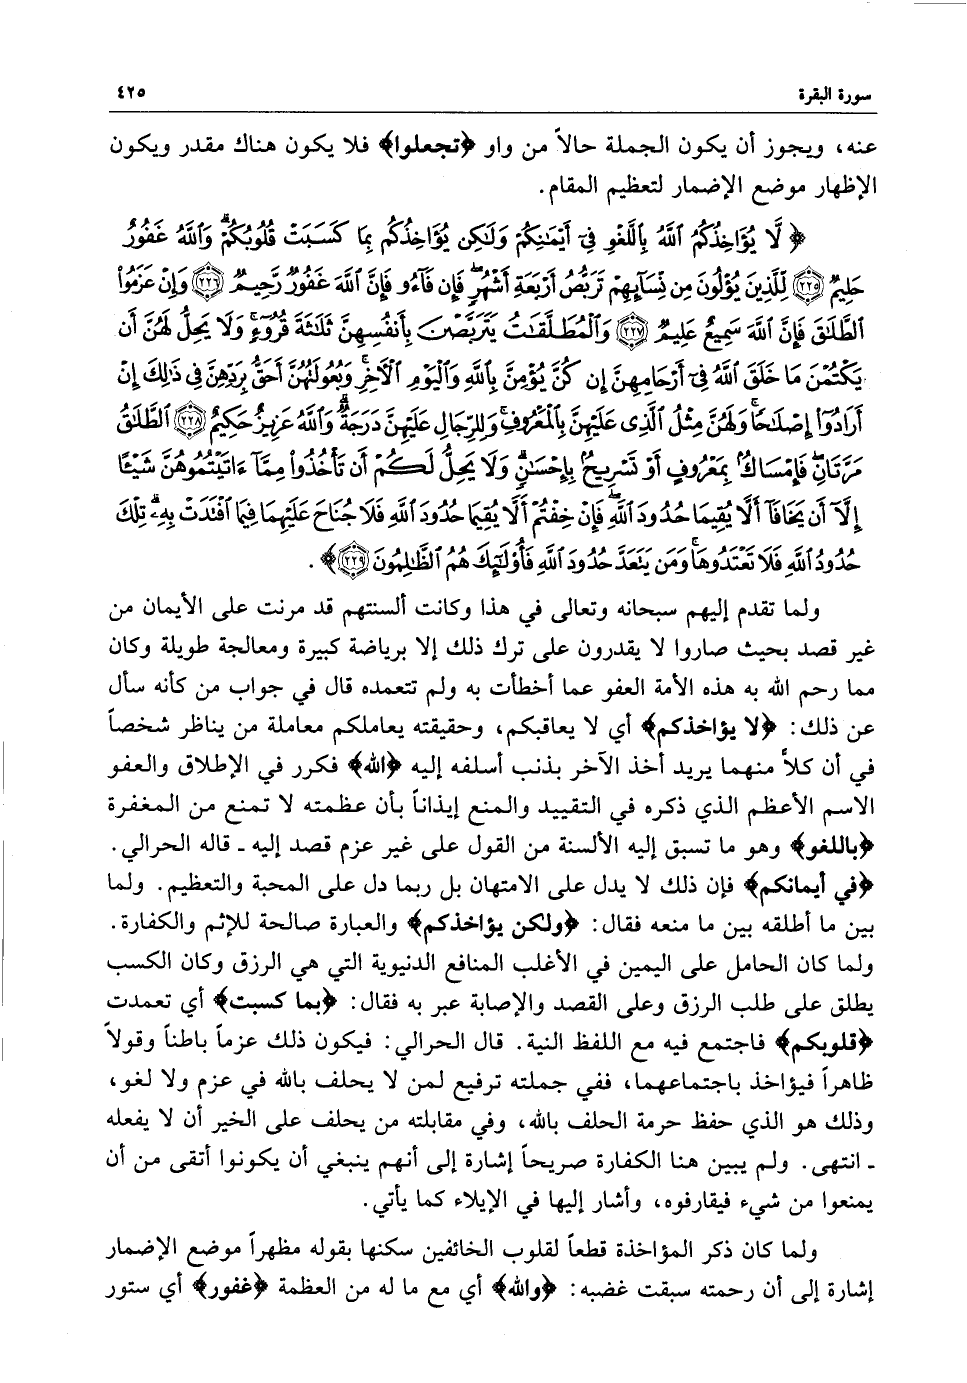 سورة البقرة ٤٢٥
عنه، ويجوز أن يكون الجملة حالاً من واو ﴿تجعلوا﴾ فلا يكون هناك مقدر ويكون
الإظهار موضع الإضمار لتعظيم المقام.
﴿ لَّا يُؤَاخِذُكُمُ ٱللَّهُ بِٱللَّغْوِ فِىٓ أَيْمَـٰنِكُمْ وَلَـٰكِن يُؤَاخِذُكُم بِمَا كَسَبَتْ قُلُوبُكُمْ ۗ وَٱللَّهُ غَفُورٌ
حَلِيمٌ ﴿٢٢٥﴾ لِّلَّذِينَ يُؤْلُونَ مِن نِّسَآئِهِمْ تَرَبُّصُ أَرْبَعَةِ أَشْهُرٍ ۖ فَإِن فَآءُو فَإِنَّ ٱللَّهَ غَفُورٌ رَّحِيمٌ ﴿٢٢٦﴾ وَإِنْ عَزَمُوا۟
ٱلطَّلَـٰقَ فَإِنَّ ٱللَّهَ سَمِيعٌ عَلِيمٌ ﴿٢٢٧﴾ وَٱلْمُطَلَّقَـٰتُ يَتَرَبَّصْنَ بِأَنفُسِهِنَّ ثَلَـٰثَةَ قُرُوٓءٍ ۚ وَلَا يَحِلُّ لَهُنَّ أَن
يَكْتُمْنَ مَا خَلَقَ ٱللَّهُ فِىٓ أَرْحَامِهِنَّ إِن كُنَّ يُؤْمِنَّ بِٱللَّهِ وَٱلْيَوْمِ ٱلْـَٔاخِرِ ۚ وَبُعُولَتُهُنَّ أَحَقُّ بِرَدِّهِنَّ فِى ذَٰلِكَ إِنْ
أَرَادُوٓا۟ إِصْلَـٰحًا ۚ وَلَهُنَّ مِثْلُ ٱلَّذِى عَلَيْهِنَّ بِٱلْمَعْرُوفِ ۚ وَلِلرِّجَالِ عَلَيْهِنَّ دَرَجَةٌ ۗ وَٱللَّهُ عَزِيزٌ حَكِيمٌ ﴿٢٢٨﴾ ٱلطَّلَـٰقُ
مَرَّتَانِ ۖ فَإِمْسَاكٌۢ بِمَعْرُوفٍ أَوْ تَسْرِيحٌۢ بِإِحْسَـٰنٍ ۗ وَلَا يَحِلُّ لَكُمْ أَن تَأْخُذُوا۟ مِمَّآ ءَاتَيْتُمُوهُنَّ شَيْـًٔا
إِلَّآ أَن يَخَافَآ أَلَّا يُقِيمَا حُدُودَ ٱللَّهِ ۖ فَإِنْ خِفْتُمْ أَلَّا يُقِيمَا حُدُودَ ٱللَّهِ فَلَا جُنَاحَ عَلَيْهِمَا فِيمَا ٱفْتَدَتْ بِهِۦ ۗ تِلْكَ
حُدُودُ ٱللَّهِ فَلَا تَعْتَدُوهَا ۚ وَمَن يَتَعَدَّ حُدُودَ ٱللَّهِ فَأُو۟لَـٰٓئِكَ هُمُ ٱلظَّـٰلِمُونَ ﴿٢٢٩﴾ ﴾ .
ولما تقدم إليهم سبحانه وتعالى في هذا وكانت ألسنتهم قد مرنت على الأيمان من
غير قصد بحيث صاروا لا يقدرون على ترك ذلك إلا برياضة كبيرة ومعالجة طويلة وكان
مما رحم الله به هذه الأمة العفو عما أخطأت به ولم تتعمده قال في جواب من كأنه سأل
عن ذلك: ﴿لا يؤاخذكم﴾ أي لا يعاقبكم، وحقيقته يعاملكم معاملة من يناظر شخصاً
في أن كلاً منهما يريد أخذ الآخر بذنب أسلفه إليه ﴿الله﴾ فكرر في الإطلاق والعفو
الاسم الأعظم الذي ذكره في التقييد والمنع إيذاناً بأن عظمته لا تمنع من المغفرة
﴿باللغو﴾ وهو ما تسبق إليه الألسنة من القول على غير عزم قصد إليه ـ قاله الحرالي.
﴿في أيمانكم﴾ فإن ذلك لا يدل على الامتهان بل ربما دل على المحبة والتعظيم. ولما
بين ما أطلقه بين ما منعه فقال: ﴿ولكن يؤاخذكم﴾ والعبارة صالحة للإثم والكفارة.
ولما كان الحامل على اليمين في الأغلب المنافع الدنيوية التي هي الرزق وكان الكسب
يطلق على طلب الرزق وعلى القصد والإصابة عبر به فقال: ﴿بما كسبت﴾ أي تعمدت
﴿قلوبكم﴾ فاجتمع فيه مع اللفظ النية. قال الحرالي: فيكون ذلك عزماً باطناً وقولاً
ظاهراً فيؤاخذ باجتماعهما، ففي جملته ترفيع لمن لا يحلف بالله في عزم ولا لغو،
وذلك هو الذي حفظ حرمة الحلف بالله، وفي مقابلته من يحلف على الخير أن لا يفعله
ـ انتهى. ولم يبين هنا الكفارة صريحاً إشارة إلى أنهم ينبغي أن يكونوا أتقى من أن
يمنعوا من شيء فيقارفوه، وأشار إليها في الإيلاء كما يأتي.
ولما كان ذكر المؤاخذة قطعاً لقلوب الخائفين سكنها بقوله مظهراً موضع الإضمار
إشارة إلى أن رحمته سبقت غضبه: ﴿والله﴾ أي مع ما له من العظمة ﴿غفور﴾ أي ستور